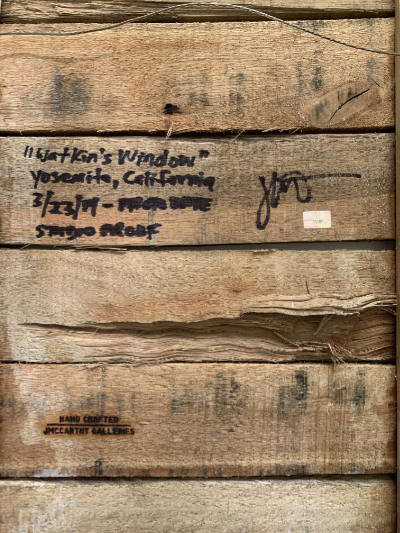 "Watkin's Window"
Yosemite, California
3/23/19 - PROD DATE
STUDIO PROOF
HAND CRAFTED
JMCCARTHY GALLERIES